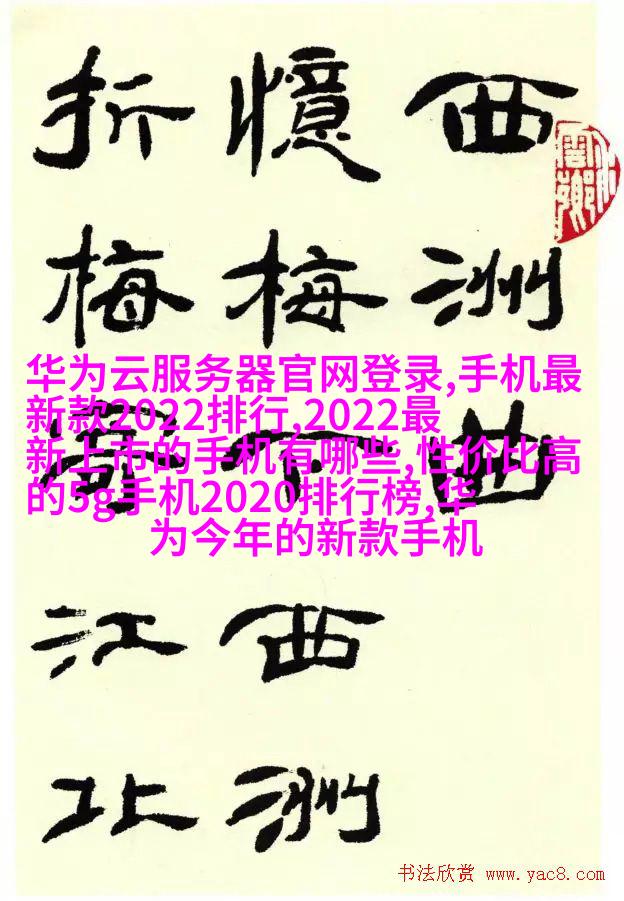 西洲曲
憶梅下西洲
折梅寄江北
华为云服务器官网登录,手机最
新款2022排行,2022最
新上市的手机有哪些,性价比高
的5g手机2020排行榜,华
为今年的新款手机
书法欣赏 www.yac8.com